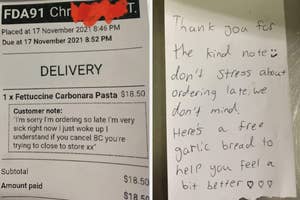 FDA91 Chr T.
Placed at 17 November 2021 8:46 PM
Due at 17 November 2021 8.52 PM
DELIVERY
1 x Fettuccine Carbonara Pasta $18.50
Customer note:
"I'm sorry I'm ordering so late I'm very
sick right now I just woke up I
understand if you cancel BC you're
trying to close to store xx"
Subtotal $18.50
Amount paid $18.50
$18.50
Thank you for
the kind note
don't stress about
ordering late, we
don't mind.
Here's a free
garlic bread to
help you feel a
bit better ♡♡♡